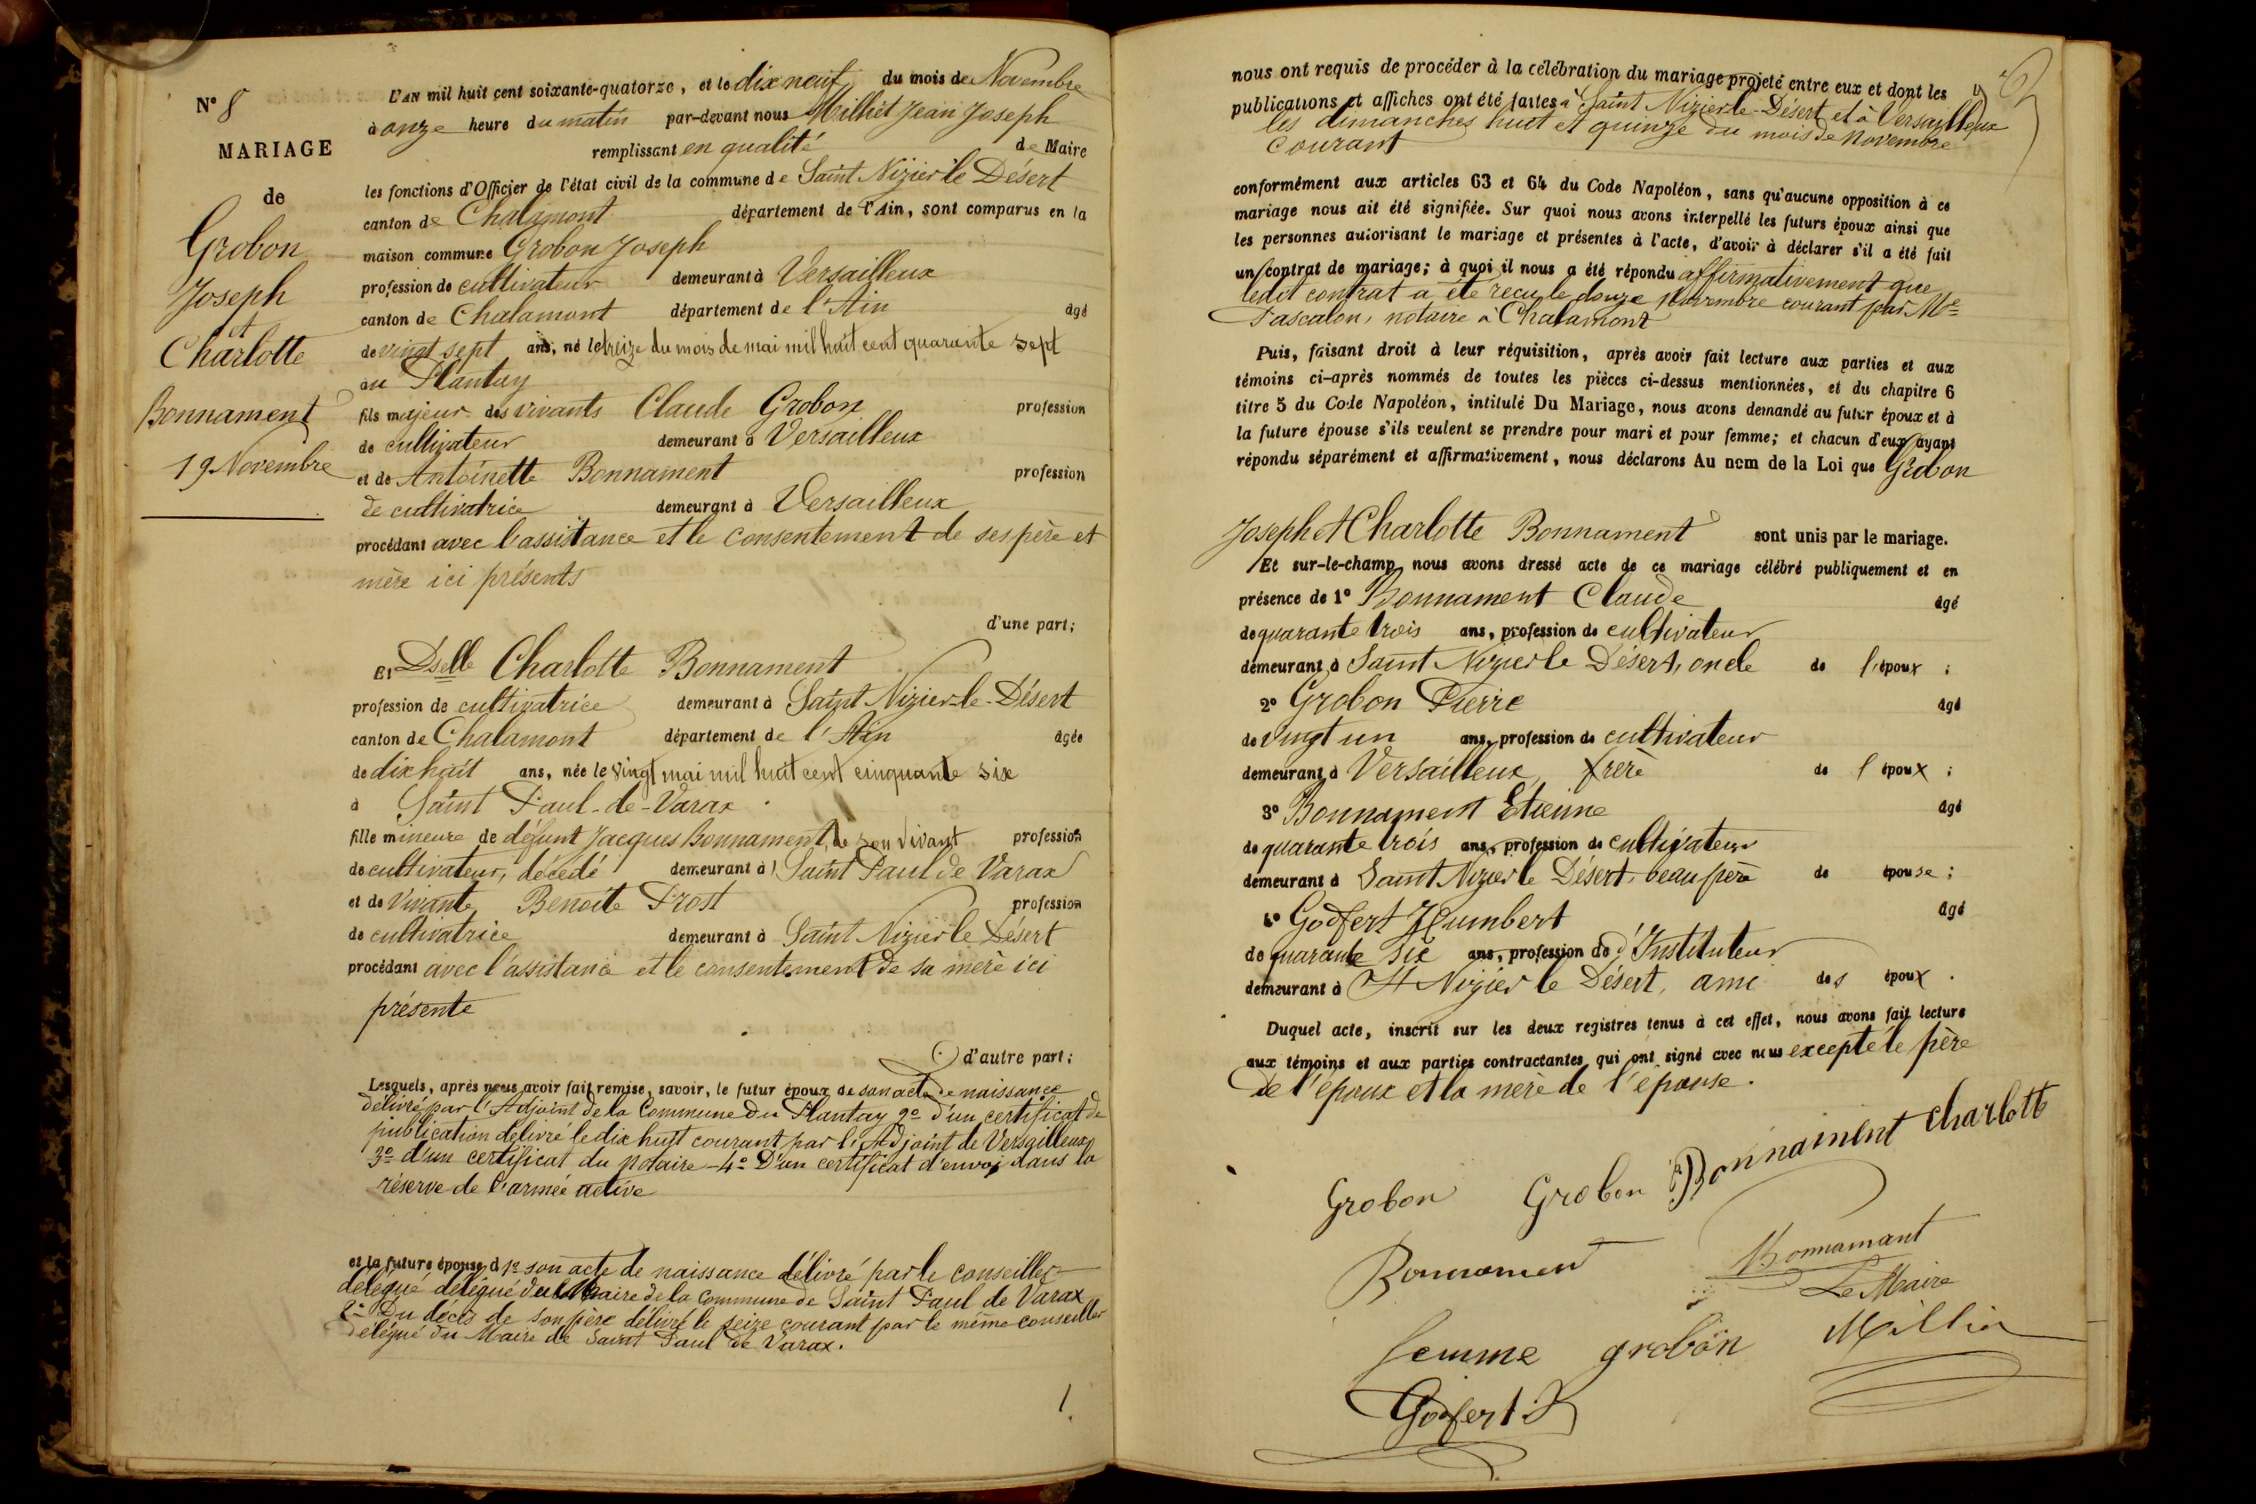 N° 8
MARIAGE
de
Grobon
Joseph
et
Charlotte
Bonnament
19 Novembre
L'AN mil huit cent soixante-quatorze, et le dix neuf du mois de Novembre
à onze heure du matin par-devant nous Milliet Jean Joseph
remplissant en qualité de Maire
les fonctions d'Officier de l'état civil de la commune de Saint Nizier le Désert
canton de Chalamont département de l'Ain, sont comparus en la
maison commune Grobon Joseph
profession de cultivateur demeurant à Versailleux
canton de Chalamont département de l'Ain âgé
de vingt sept ans, né le treize du mois de mai mil huit cent quarante sept
au Plantay
fils majeur des vivants Claude Grobon profession
de cultivateur demeurant à Versailleux
et de Antoinette Bonnament profession
de cultivatrice demeurant à Versailleux
procédant avec l'assistance et le consentement de ses père et
mère ici présents
d'une part;
Et Dselle Charlotte Bonnament
profession de cultivatrice demeurant à Saint Nizier-le-Désert
canton de Chalamont département de l'Ain âgée
de dix huit ans, née le vingt mai mil huit cent cinquante six
à Saint Paul-de-Varax
fille mineure de défunt Jacques Bonnament, de son vivant profession
de cultivateur, décédé demeurant à Saint Paul de Varax
et de Vivante Benoite Frost profession
de cultivatrice demeurant à Saint Nizier le Désert
procédant avec l'assistance et le consentement de sa mère ici
présente
d'autre part;
Lesquels, après nous avoir fait remise, savoir, le futur époux de son acte de naissance
délivré par l'Adjoint de la Commune du Plantay 2° d'un certificat de
publication délivré le dix huit courant par l'Adjoint de Versailleux
3° d'un certificat du notaire - 4° D'un certificat d'envoi dans la
réserve de l'armée active
et la future épouse d 1° son acte de naissance délivré par le conseiller
délégué délégué du Maire de la commune de Saint Paul de Varax
2° Du décès de son père délivré le seize courant par le même conseiller
délégué du Maire de Saint Paul de Varax.
1
nous ont requis de procéder à la célébration du mariage projeté entre eux et dont les
publications et affiches ont été faites à Saint Nizier le-Désert et à Versailleux
les dimanches huit et quinze du mois de novembre
courant
conformément aux articles 63 et 64 du Code Napoléon, sans qu'aucune opposition à ce
mariage nous ait été signifiée. Sur quoi nous avons interpellé les futurs époux ainsi que
les personnes autorisant le mariage et présentes à l'acte, d'avoir à déclarer s'il a été fait
un contrat de mariage; à quoi il nous a été répondu affirmativement que
ledit contrat a été reçu le douze Novembre courant par Me
Pascalon, notaire à Chalamont
Puis, faisant droit à leur réquisition, après avoir fait lecture aux parties et aux
témoins ci-après nommés de toutes les pièces ci-dessus mentionnées, et du chapitre 6
titre 5 du Code Napoléon, intitulé Du Mariage, nous avons demandé au futur époux et à
la future épouse s'ils veulent se prendre pour mari et pour femme; et chacun d'eux ayant
répondu séparément et affirmativement, nous déclarons Au nom de la Loi que Grobon
Joseph et Charlotte Bonnament sont unis par le mariage.
Et sur-le-champ nous avons dressé acte de ce mariage célébré publiquement et en
présence de 1° Bonnament Claude âgé
de quarante trois ans, profession de cultivateur
demeurant à Saint Nizier le Désert, oncle de l'époux ;
2° Grobon Pierre âgé
de vingt un ans, profession de cultivateur
demeurant à Versailleux, frère de l époux ;
3° Bonnament Etienne âgé
de quarante trois ans, profession de cultivateur
demeurant à Saint Nizier le Désert, beau père de épouse ;
4° Godfert Humbert âgé
de quarante six ans, profession de d'Instituteur
demeurant à St Nizier le Désert, ami des époux .
Duquel acte, inscrit sur les deux registres tenus à cet effet, nous avons fait lecture
aux témoins et aux parties contractantes qui ont signé avec nous excepté le père
de l'époux et la mère de l'épouse.
Bonnament Charlotte
Grobon Grobon
Bonnament Bonnamant
Le Maire
femme grobon Milliet
Godfert H